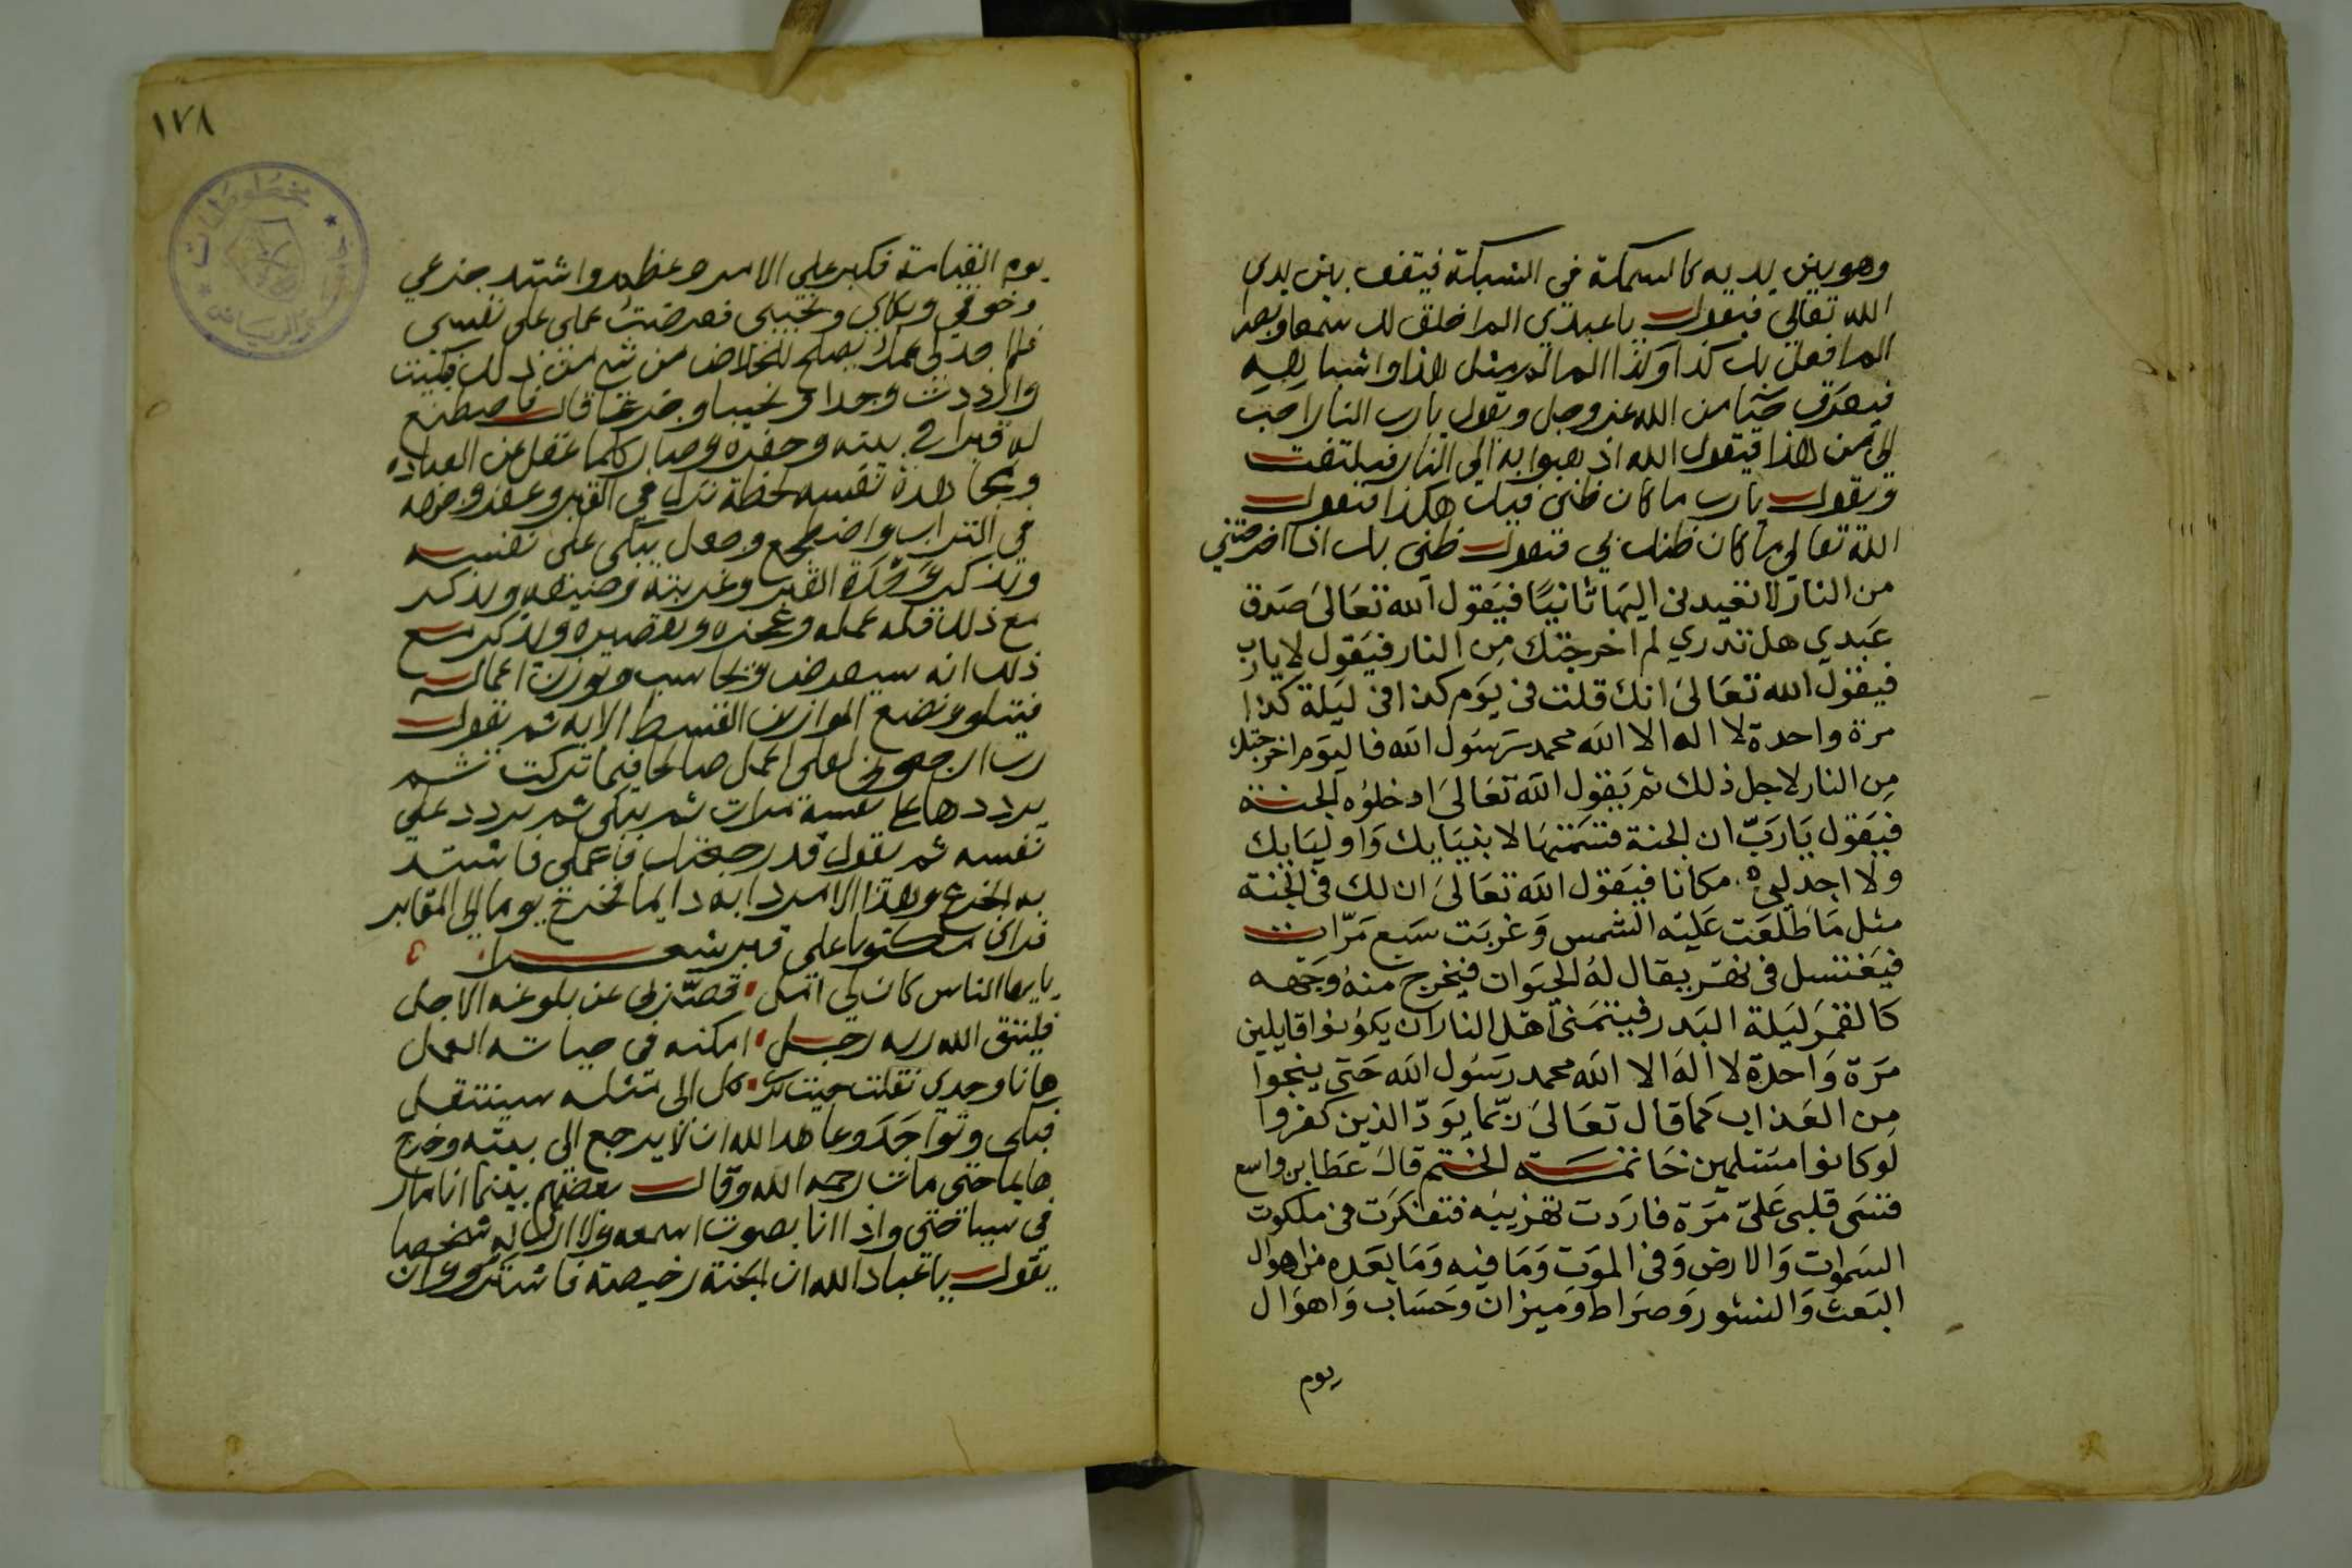 وهو بين يديه كالسمكة في الشبكة فيقف بين يدي
الله تعالي فيقول يا عبدي الم اخلق لك سمعا وبصرا
الم افعل بك كذا وكذا الم الم مثل هذا واشباهه
فيعرق حيا من الله عز وجل ويقول يا رب النار احب
الي من هذا فيقول الله اذهبوا به الي النار فيلتفت
ويقول يا رب ما كان ظني فيك هكذا فيقول
الله تعالي ما كان ظنك بي فيقول ظني بك اذا اخرجتني
من النار لا تعيدني اليها ثانيا فيقول الله تعالى صدق
عبدي هل تدري لم اخرجتك من النار فيقول لا يارب
فيقول الله تعالى انك قلت في يوم كذا في ليلة كذا
مرة واحدة لا اله الا الله محمد رسول الله فاليوم اخرجتك
من النار لاجل ذلك ثم يقول الله تعالى ادخلوه الجنة
فيقول يا رب ان الجنة قسمتها لانبيايك واوليايك
ولا اجد لي مكانا فيقول الله تعالى ان لك في الجنة
مثل ما طلعت عليه الشمس وغربت سبع مرات
فيغتسل في نهر يقال له الحيوان فيخرج منه وجهه
كالقمر ليلة البدر فيتمنى اهل النار ان يكونوا قايلين
مرة واحدة لا اله الا الله محمد رسول الله حتى ينجوا
من العذاب كما قال تعالى ربما يود الذين كفروا
لو كانوا مسلمين خاتمة الختم قال عطا بن واسع
قسى قلبي علي مرة فاردت تهذيبه فتفكرت في ملكوت
السموات والارض وفي الموت وما فيه وما بعده من اهوال
البعث والنشور وصراط وميزان وحساب واهوال
يوم
١٧٨
يوم القيامة فكبر علي الامر وعظم واشتد جزعي
وخوفي وبكاي ونحيبي فعرضت عملي على نفسي
فلم اجد لي عملا يصلح للخلاص من شي من ذلك فبكيت
وازددت وجدا ونحيبا وجزعا قال فاصطنع
له قبرا في بيته وحفره وصار كلما غفل عن العبادة
ومجاهدة نفسه لحظة نزل في القبر وعفر وجهه
في التراب واضطجع وجعل يبكي على نفسه
ويذكر وحدة القبر وغربته وضيقه ويذكر
مع ذلك قلة عمله وعجزه وتقصيره ويذكر مع
ذلك انه سيعرض ويحاسب وتوزن اعماله
فيتلو ونضع الموازين القسط الايه ثم يقول
رب ارجعون لعلي اعمل صالحا فيما تركت ثم
يرددها على نفسه مرات ثم يبكي ثم يردد على
نفسه ثم يقول قد رجعتك فاعملي فاشتد
به الجزع وهذا الامر دابه دايما فخرج يوما الي المقابر
فراى مكتوبا على قبر شعـــرا
يا ايها الناس كان لي امل قصر بي عن بلوغه الاجل
فليتق الله ربه رجل امكنه في حياته العمل
ها انا وحدي نقلت حيث ترى كل الى مثله سينتقل
فبكى وتواجد وعاهد الله ان لا يرجع الى بيته وخرج
هايما حتى مات رحمه الله وقال بعضهم بينما انا مار
في سياحتي واذا انا بصوت اسمعه ولا ارى له شخصا
يقول يا عباد الله ان الجنة رخيصة فاشتروها وان
مخطوطات
الرياض